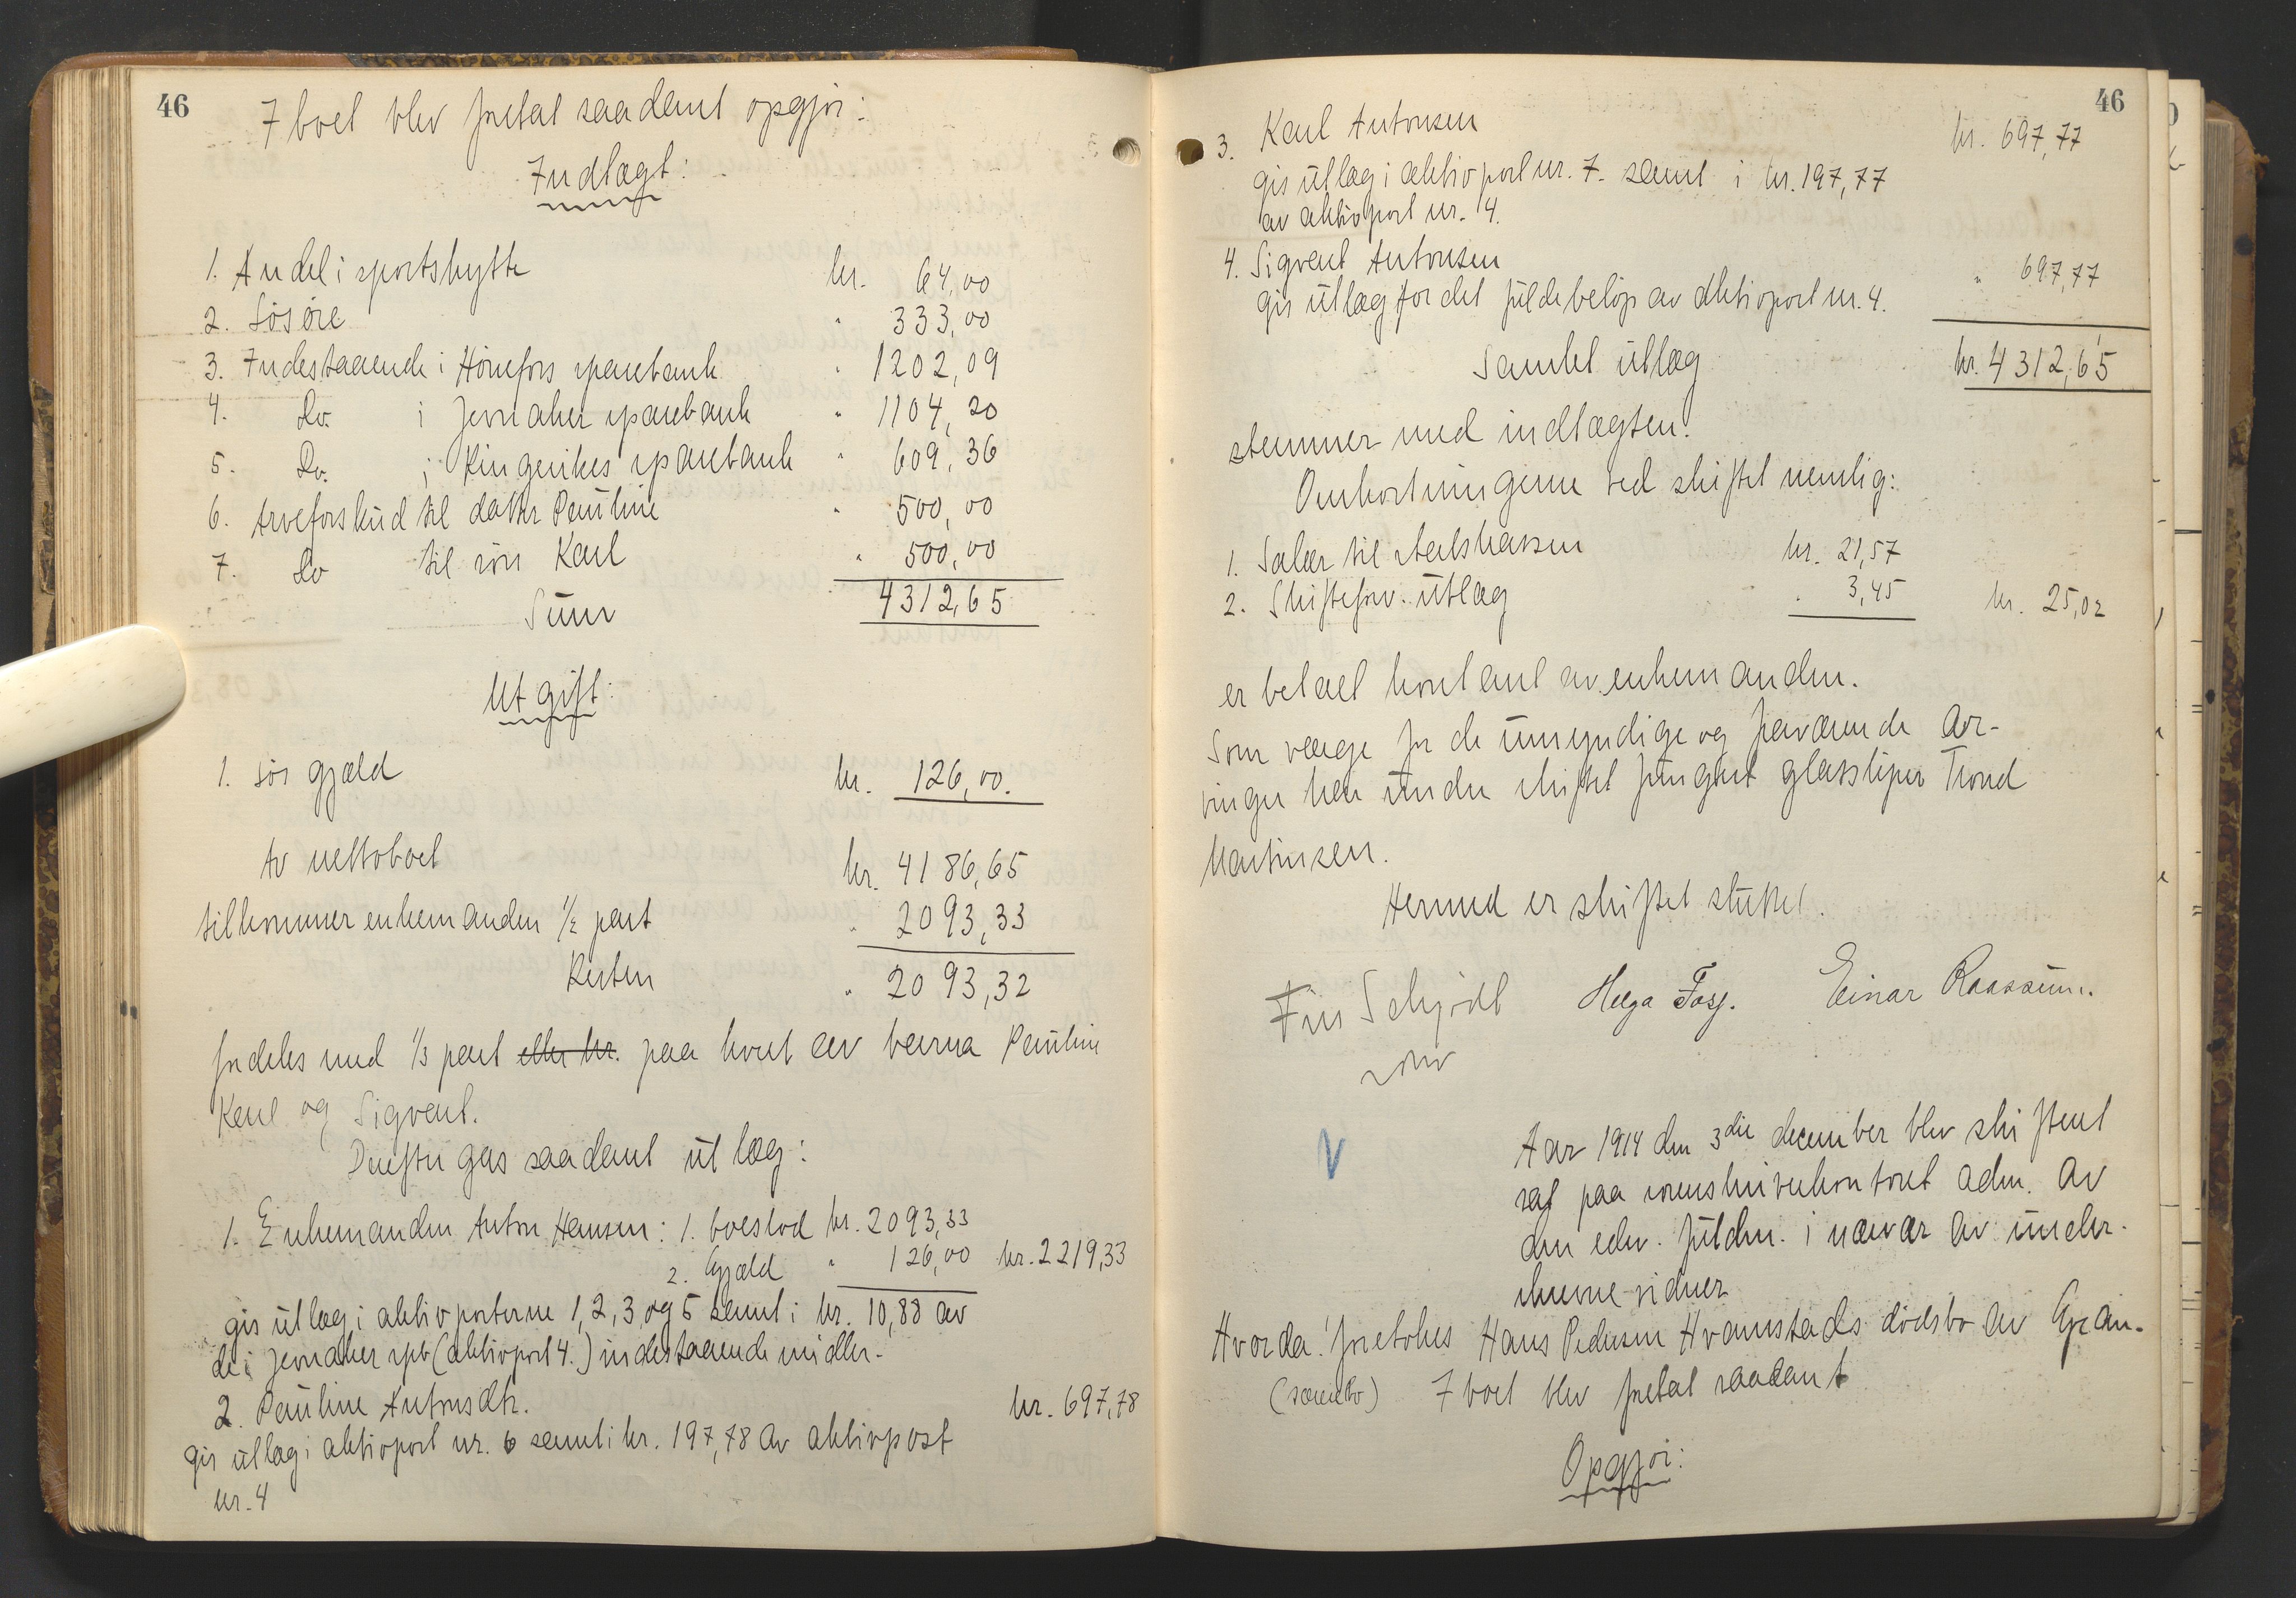 46
I boet blev foretat saadant opgjør:
Indtægt:
1. Andel i sportshytte kr. 64,00
2. Løsøre " 333,00
3. Indestaaende i Hønefos sparebank " 1202,09
4. Do. i Jevnaker sparebank " 1104,20
5. Do. i Ringerikes sparebank " 609,36
6. Arveforskud til datter Pauline " 500,00
7. Do til søn Karl " 500,00
Sum 4312,65
Utgift:
1. Løs gjæld kr. 126,00.
Av nettoboet kr. 4186,65
tilkommer enkemanden 1/2 part " 2093,33
Resten " 2093,32
fordeles med 1/3 part eller kr. paa hvert av barna Pauline
Karl og Sigvart.
Derefter gas saadant utlæg:
1. Enkemanden Anton Hansen: 1. boeslod kr. 2093,33
2. Gjæld " 126,00 kr. 2219,33
gis utlæg i aktivposterne 1, 2, 3, og 5 samt i kr. 10,88 av
de i Jevnaker spb (aktivpost 4.) indestaaende midler.
2. Pauline Antonsdtr. kr. 697,78
gis utlæg i aktivpost nr. 6 samt i kr. 197,78 av aktivpost
nr. 4
46
3. Karl Antonsen kr. 697,77
gis utlæg i aktivpost nr. 7. samt i kr. 197,77
av aktivpost nr. 4.
4. Sigvart Antonsen " 697,77
gis utlæg for det fulde beløp av aktivpost nr. 4.
Samlet utlæg kr. 4312,65
stemmer med indtægten.
Omkostningerne ved skiftet nemlig:
1. Salær til statskassen kr. 21,57
2. Skifteforv. utlæg " 3,45 kr. 25,02
er betalt kontant av enkemanden.
Som værge for de umyndige og fraværende ar-
vinger har under skiftet fungert glassliper Trond
Martinsen.
Hermed er skiftet sluttet.
Finn Schjødt Helga Fosg. Einar Raassum.
V
Aar 1914 den 3die december blev skifteret
sat paa sorenskriverkontoret adm. av
den edsv. fuldm. i nærvær av under-
skrevne vidner
Hvorda! foretokes Hans Pedersen Hvamstads dødsbo av Gran.
(særbo) I boet blev foretat saadant
Opgjør: